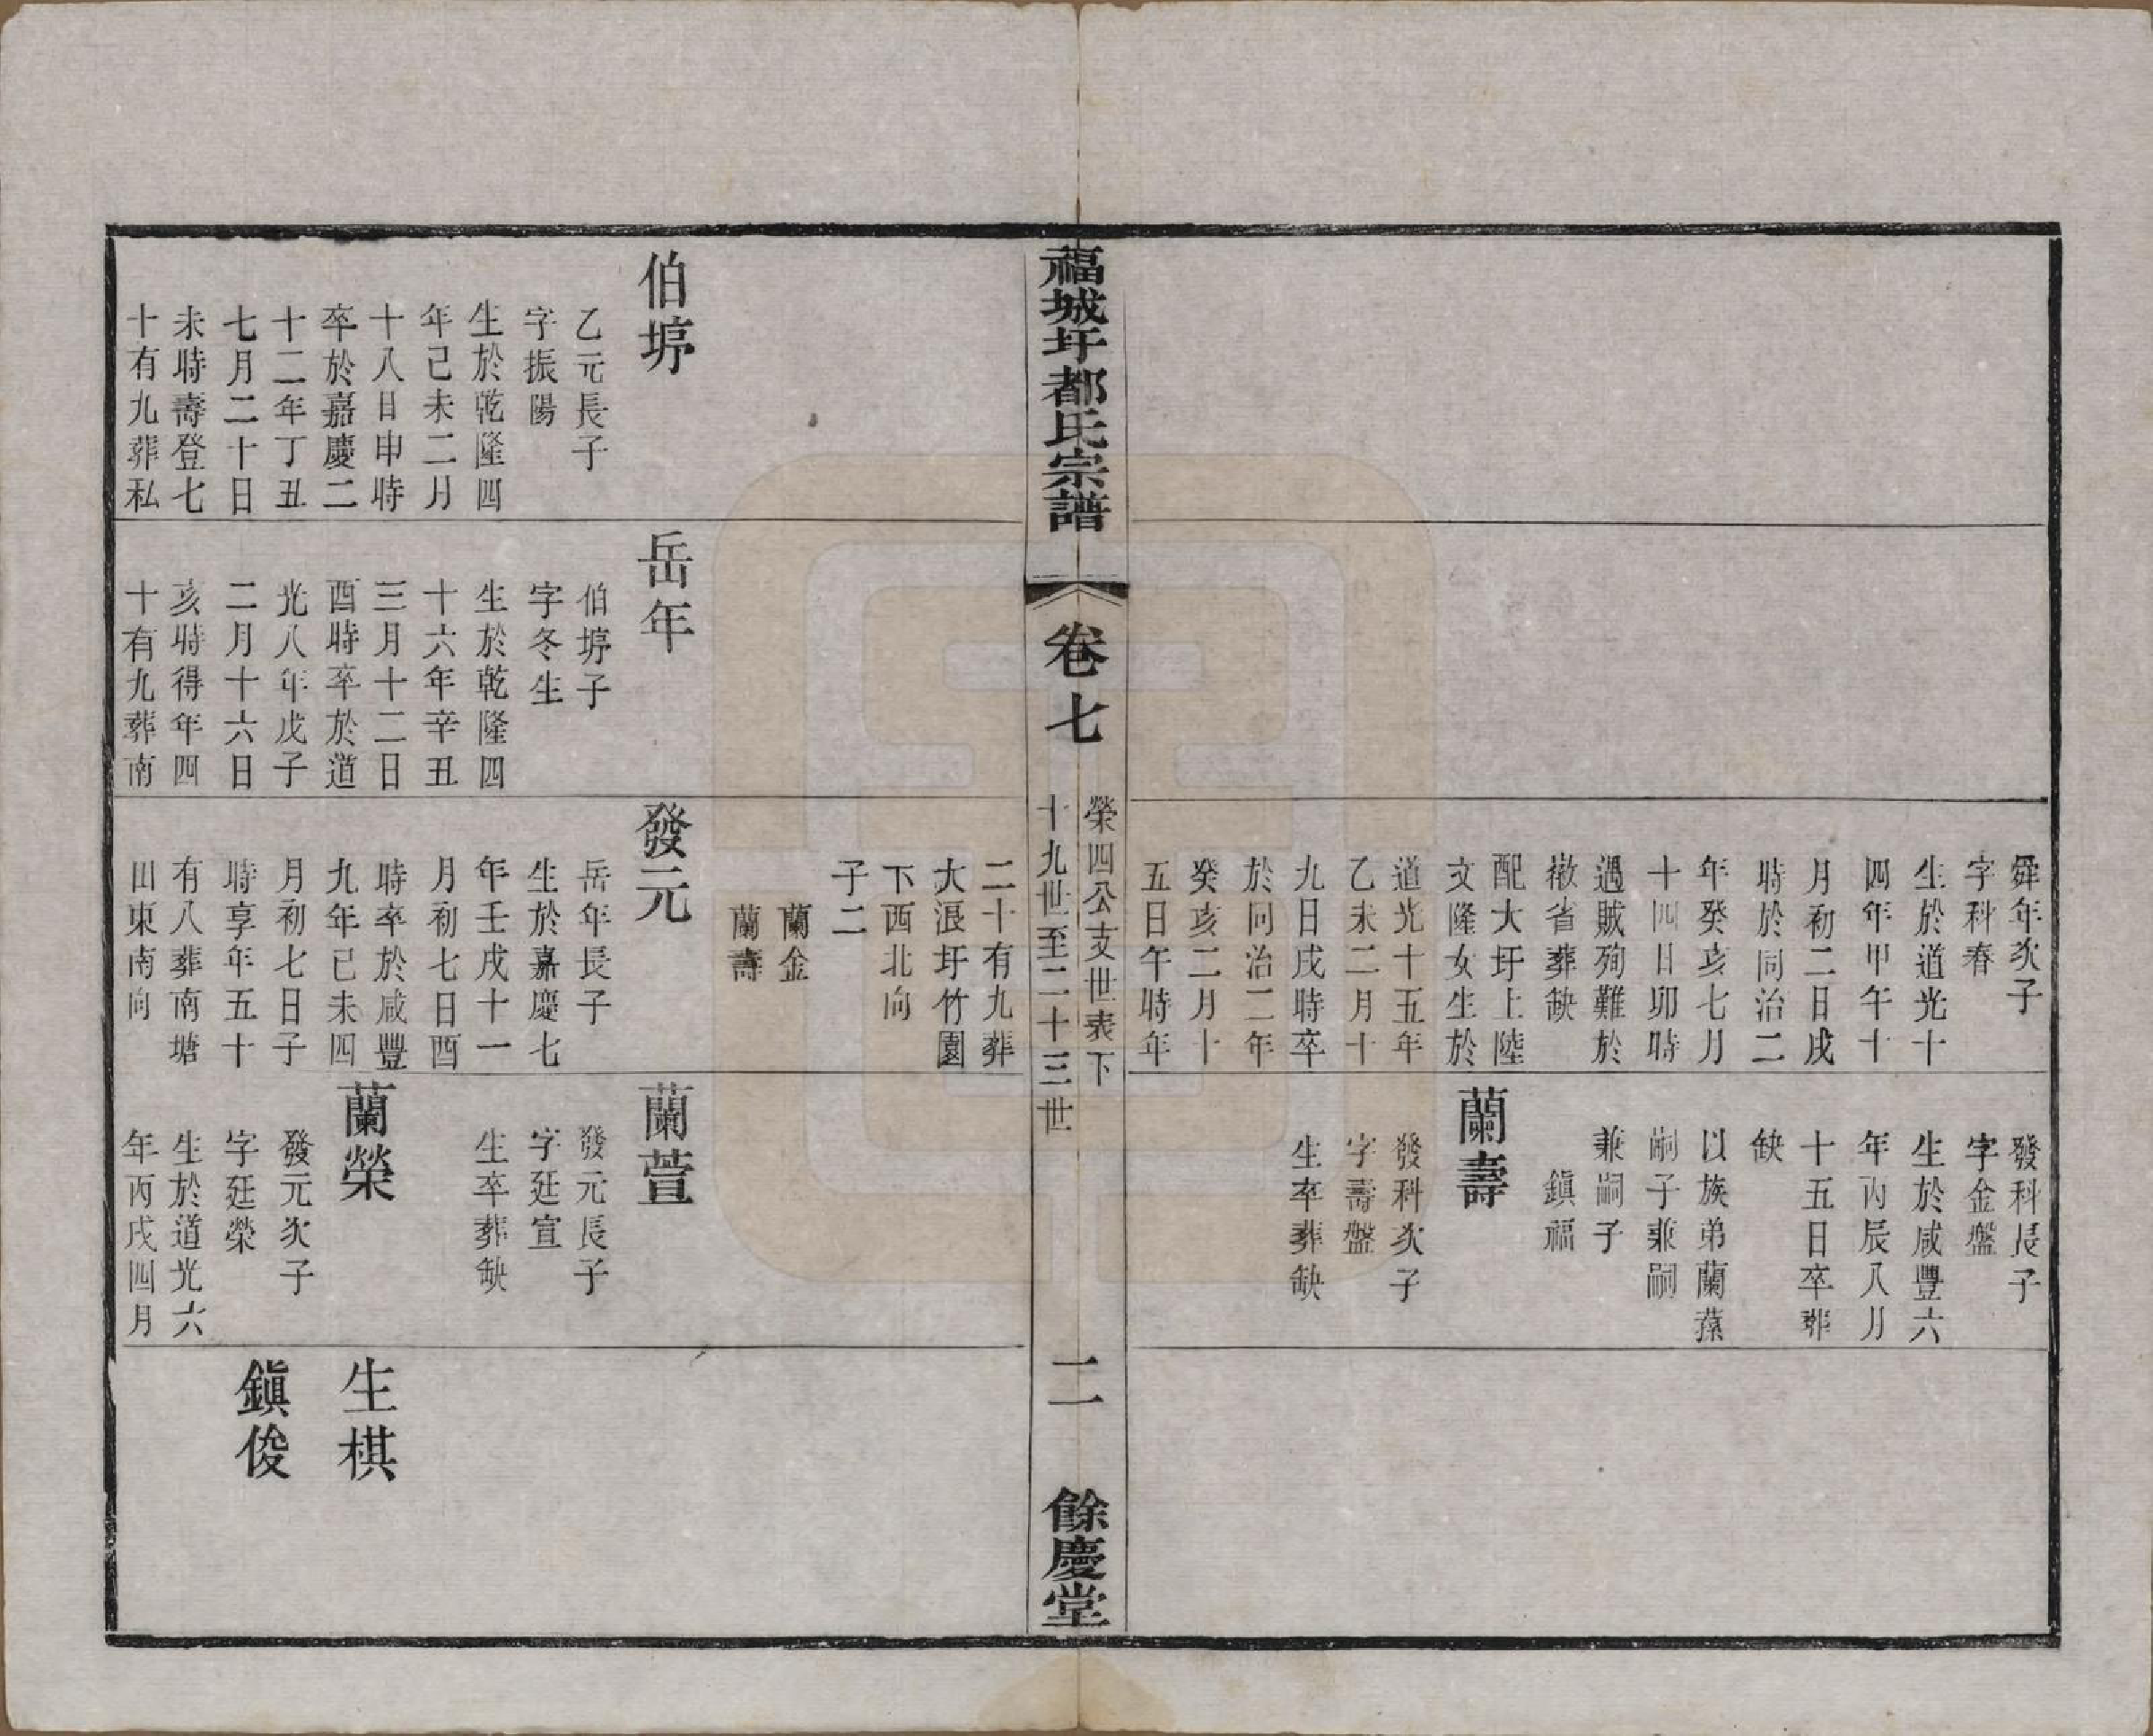 舜年次子
字科春
生於道光十
四年甲午十
月初二日戌
時於同治二
年癸亥七月
十四日卯時
遇賊殉難於
徽省葬缺
配大圩上陸
文隆女生於
道光十五年
乙未二月十
九日戌時卒
於同治二年
癸亥二月十
五日午時年
發科長子
字金盤
生於咸豐六
年丙辰八月
十五日卒葬
缺
以族弟蘭葆
嗣子兼嗣
兼嗣子
鎮福
蘭壽
發科次子
字壽盤
生卒葬缺
福城圩都氏宗譜
卷七
榮四公支世表下
十九世至二十三世
二
餘慶堂
伯埻
乙元長子
字振陽
生於乾隆四
年己未二月
十八日申時
卒於嘉慶二
十二年丁丑
七月二十日
未時壽登七
十有九葬私
岳年
伯埻子
字冬生
生於乾隆四
十六年辛丑
三月十二日
酉時卒於道
光八年戊子
二月十六日
亥時得年四
十有九葬南
二十有九葬
大浪圩竹園
下西北向
子二
蘭金
蘭壽
發元
岳年長子
生於嘉慶七
年壬戌十一
月初七日酉
時卒於咸豐
九年己未四
月初七日子
時享年五十
有八葬南塘
田東南向
蘭萱
發元長子
字廷宣
生卒葬缺
蘭榮
發元次子
字廷榮
生於道光六
年丙戌四月
生棋
鎮俊